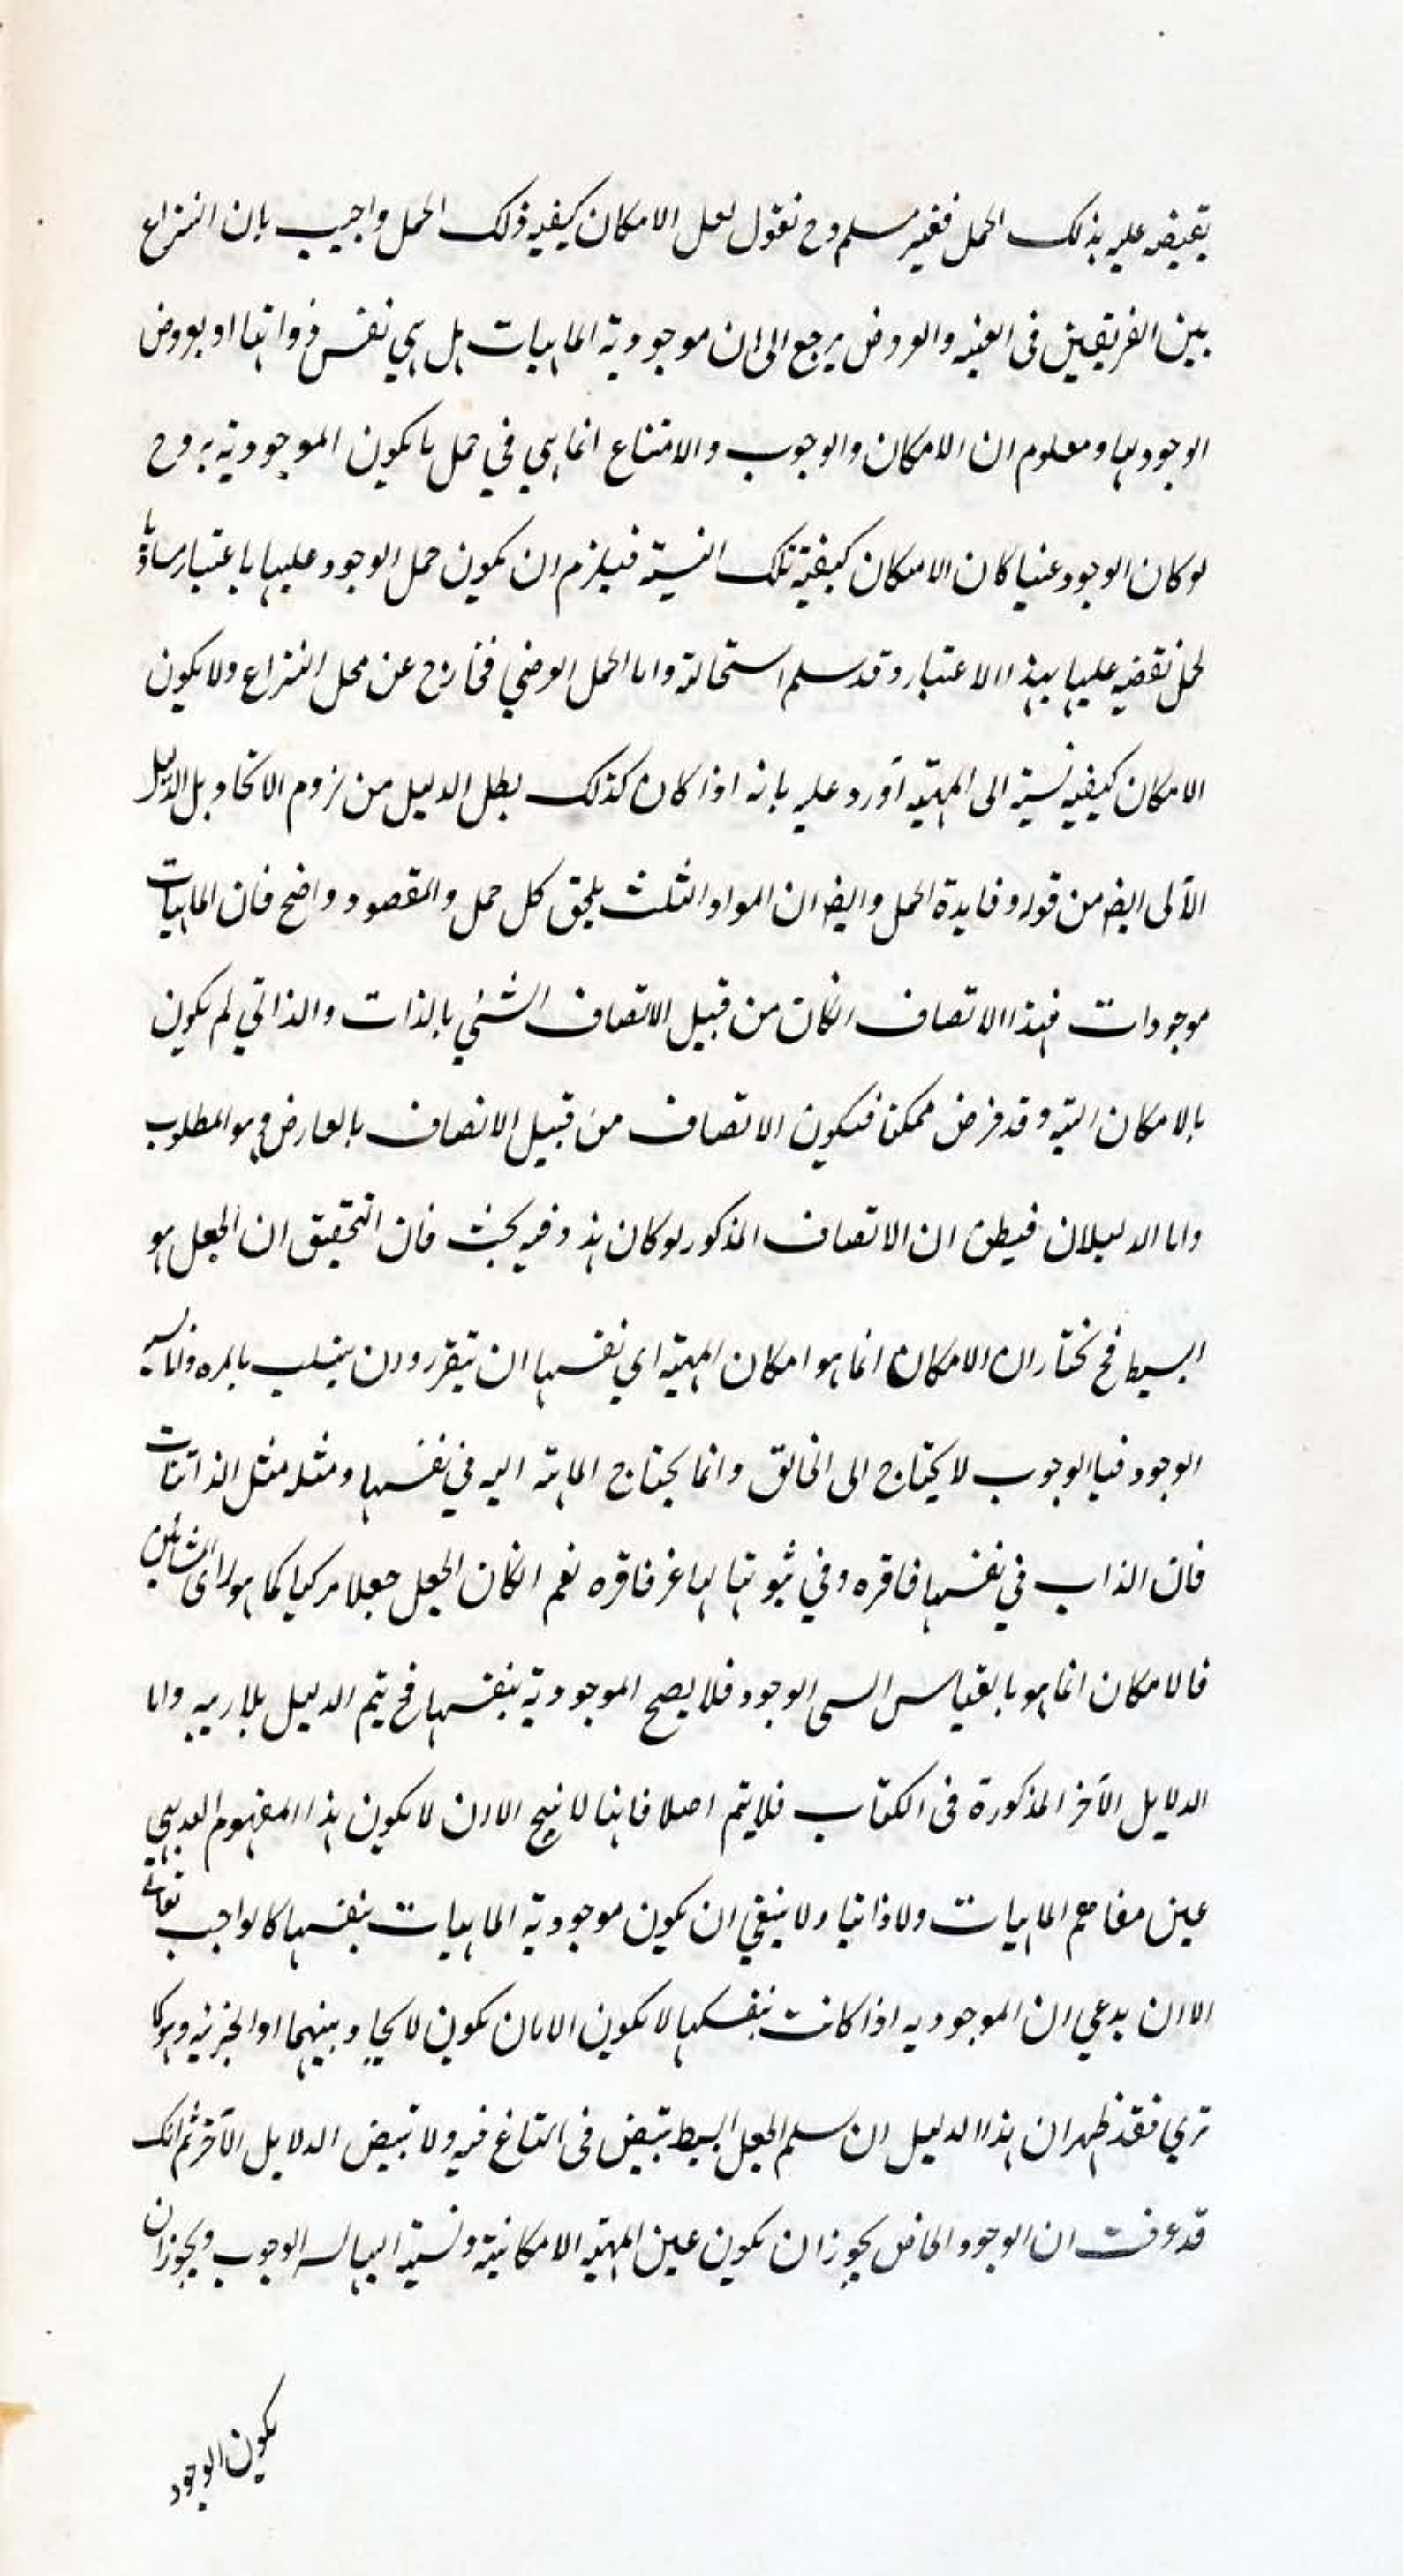 نقيضه عليه بذلك الحمل فغير مسلم وح نقول لعل الامكان كيفيه ذلك الحمل واجيب بان النزاع
بين الفريقين فى العينيه والعروض يرجع الى ان موجودية الماهيات هل هي نفس ذواتها او بعروض
الوجود لها ومعلوم ان الامكان والوجوب والامتناع انما هي في حمل ما يكون الموجودية به وح
لو كان الوجود عينا كان الامكان كيفية تلك النسبة فيلزم ان يكون حمل الوجود عليها باعتبار مساويا
لحمل نقيضه عليها بهذا الاعتبار وقد سلم استحالته واما الحمل العرضي فخارج عن محل النزاع ولا يكون
الامكان كيفيه نسبة الى المهية اورد عليه بانه اذا كان كذلك بطل الدليل من لزوم الاتحاد بل الدليل
الآلى ايضا من قوله وفايدة الحمل وايضا ان المواد الثلث يلحق كل حمل والمقصود واضح فان الماهيات
موجودات فهذا الاتصاف انكان من قبيل الاتصاف الشئي بالذات والذاتي لم يكون
بالامكان البته وقد فرض ممكنا فيكون الاتصاف من قبيل الاتصاف بالعارض وهو المطلوب
واما الدليلان فيطن ان الاتصاف المذكور لو كان هذ وفيه بحث فان التحقيق ان الجعل هو
البسيط فح نختار ان الامكان انما هو امكان المهية اي نفسها ان يتقرر وان ينسلب بالمره واما نسبة
الوجود فيها الوجوب لا يحتاج الى الخالق وانما يحتاج الماهية اليه في نفسها ومثله مثل الذاتيات
فان الذاب في نفسها فاقره وفي ثبوتها لها غر فاقره نعم انكان الجعل جعلا مركبا كما هو راى المشائين
فالامكان انما هو بالقياس الى الوجود فلا يصح الموجودية بنفسها فح يتم الدليل بلا ريبه واما
الدلايل الآخر المذكورة فى الكتاب فلا يتم اصلا فانها لا ينتج الا ان لا يكون هذا المفهوم البديهي
عين مفاهيم الماهيات ولا ذاتيا ولا ينفي ان يكون موجودية الماهيات بنفسها كالواجب تعالى
الا ان يدعي ان الموجوديه اذا كانت بنفسها لا يكون الا بان يكون الاتحاد بينهما او الجزئيه وهو كما
تري فقد ظهر ان هذا الدليل ان سلم الجعل البسيط ينتهض فى النزاع فيه ولا ينتهض الدلايل الآخر ثم انك
قد عرفت ان الوجود الخاص يجوز ان يكون عين المهية الامكانية ونسبة اليها له الوجوب ويجوز ان
يكون الوجود